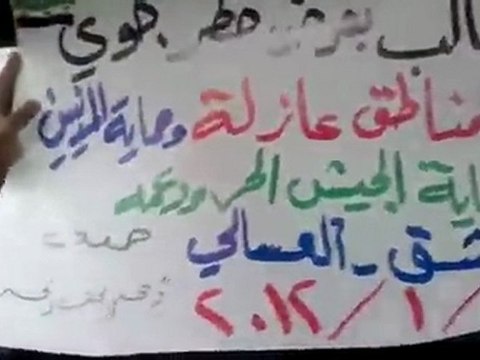 الب بفرض حظر جوي
مناطق عازلة وحماية المدنيين
اية الجيش الحر ودعمه
شق - العسالي
/ ١ / ٢٠١٢